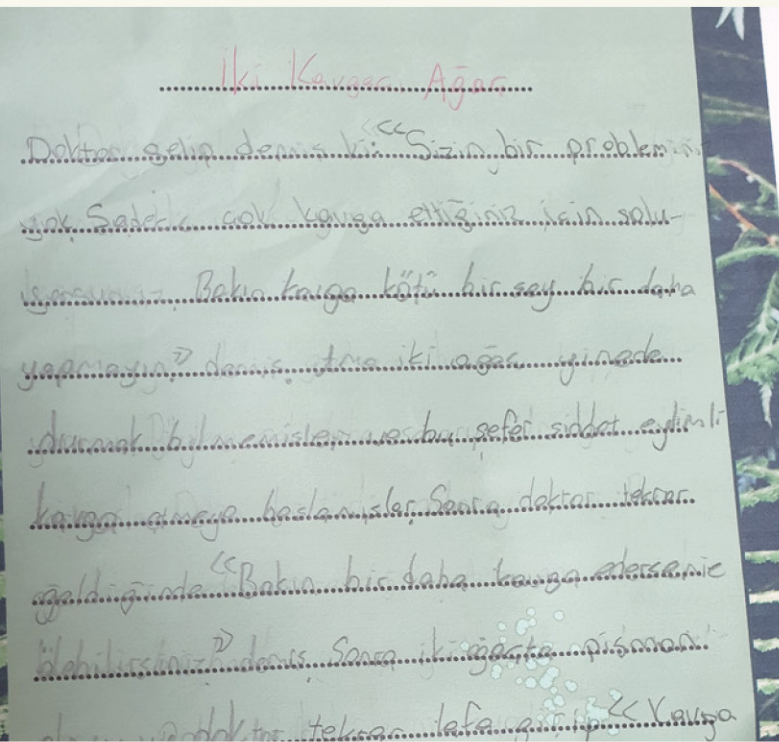 İki Kavgacı Ağaç
Doktor gelip demiş ki: «Sizin bir probleminiz
yok. Sadece çok kavga ettiğiniz için solu-
yorsunuz. Bakın kavga kötü bir şey bir daha
yapmayın.» demiş. Ama iki ağaç yinede
durmak bilmemişler ve bu sefer şiddet eğlimli
kavga etmeye başlamışlar. Sonra doktor tekrar
geldiğinde «Bakın bir daha kavga ederseniz
ölebilirsiniz» demiş. Sonra iki ağaçta pişman
doktor tekrar lafa girip «Kavga